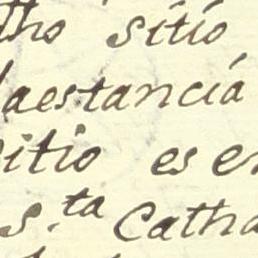 tho sitio
laestancia
sitio es en
S.ta Catha